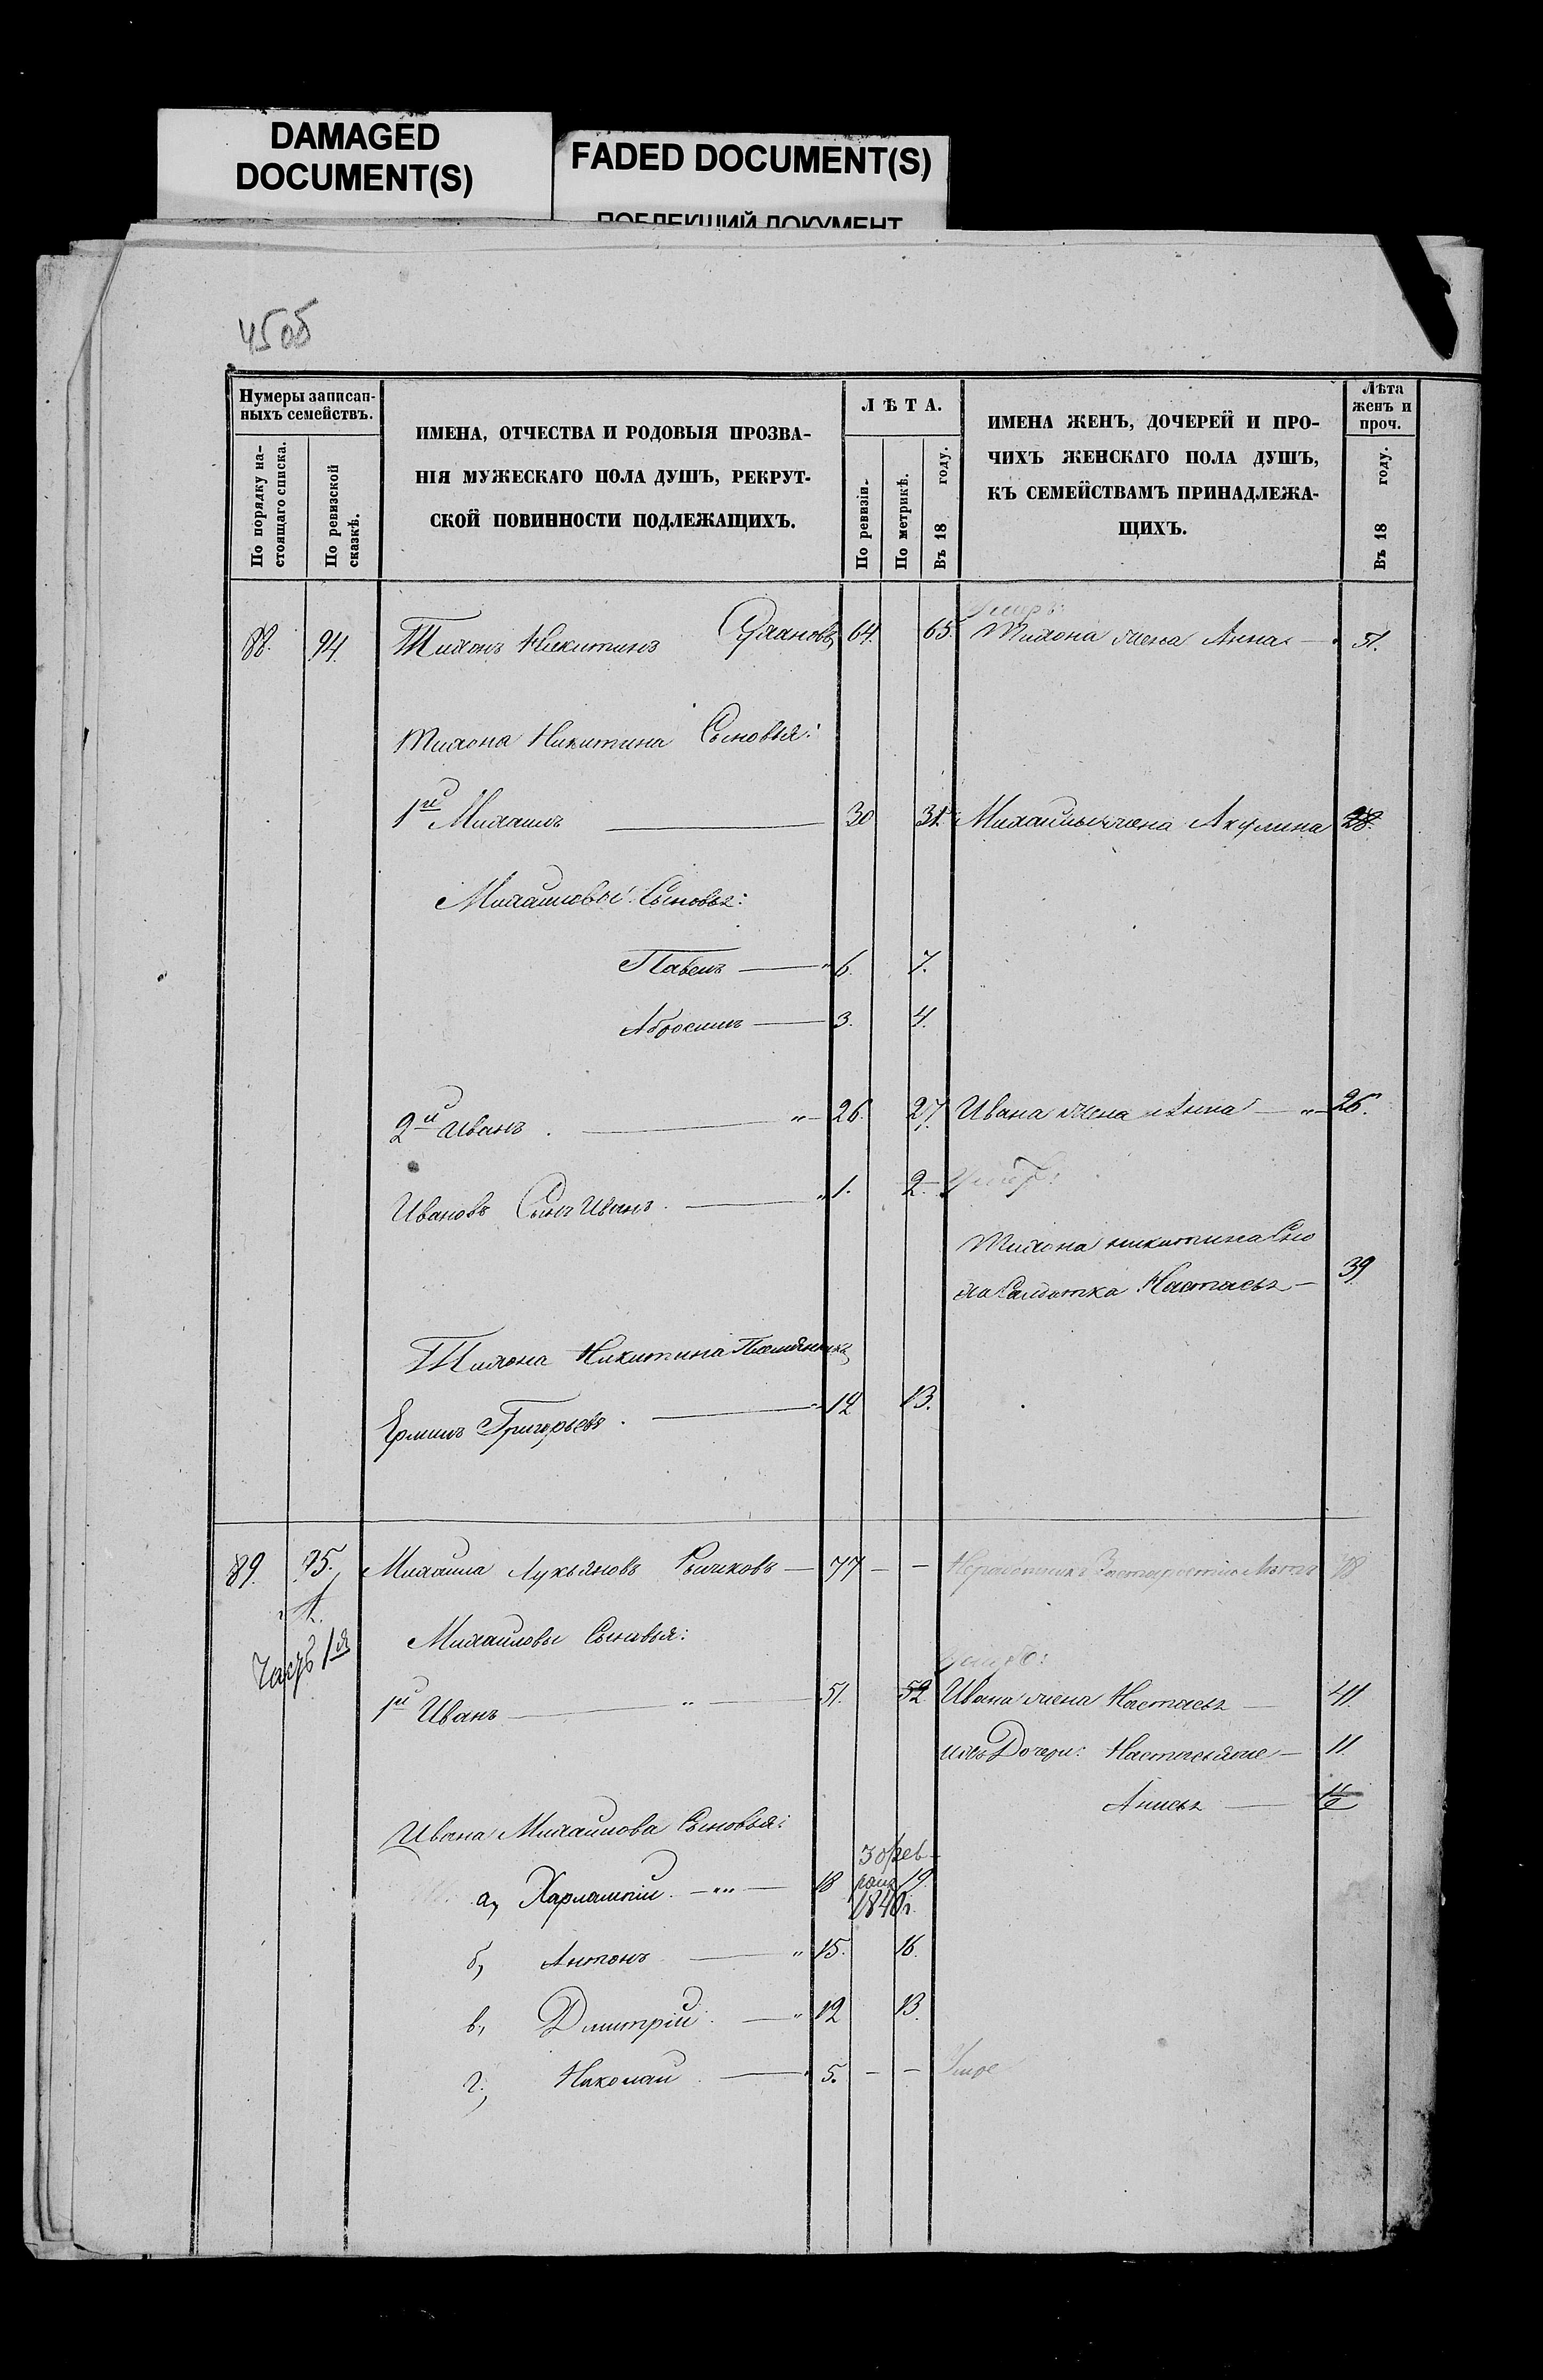 DAMAGED
DOCUMENT(S)
FADED DOCUMENT(S)
ПОБЛЕКШИЙ ДОКУМЕНТ
45об
Нумеры записан-
ныхъ семействъ.
По порядку на-
стоящаго списка.
По ревизской
сказкѣ.
ИМЕНА, ОТЧЕСТВА И РОДОВЫЯ ПРОЗВА-
НІЯ МУЖЕСКАГО ПОЛА ДУШЪ, РЕКРУТ-
СКОЙ ПОВИННОСТИ ПОДЛЕЖАЩИХЪ.
ЛѢТА.
По ревизіи.
По метрикѣ.
Въ 18 году.
ИМЕНА ЖЕНЪ, ДОЧЕРЕЙ И ПРО-
ЧИХЪ ЖЕНСКАГО ПОЛА ДУШЪ,
КЪ СЕМЕЙСТВАМЪ ПРИНАДЛЕЖА-
ЩИХЪ.
Лѣта
женъ и
проч.
Въ 18 году.
Умеръ:
88. 94. Тихонъ Никитинъ 64. 65. Тихона жена Анна — 51.
Тихона Никитина Сыновья:
1й Михаилъ — 30 31. Михайлы жена Акулина 28.
Михайловы Сыновья:
Павелъ — 6. 7.
Абросимъ — 3. 4.
2й Иванъ. — 26. 27. Ивана жена Анна — 26.
Ивановъ Сынъ Иванъ. — 1. 2. Умеръ:
Тихона никитина Сно
ха Салдатка Настасья — 39.
Тихона Никитина Племянникъ
Ермилъ Григорьевъ. — 12 13.
89. 95. Михаила Лукьяновъ — 77 — — 78
Часть 1я
Михайловы Сыновья:
Умеръ:
1й Иванъ — 51. 52. Ивана жена Настасья — 41.
ихъ Дочери: — 11.
Анисья —
Ивана Михайлова Сыновья:
а, Харлампій — 18 19.
1840г.
б, Антонъ — 15. 16.
в, Дмитрій. — 12 13.
г, Николай — 5. — — Умре